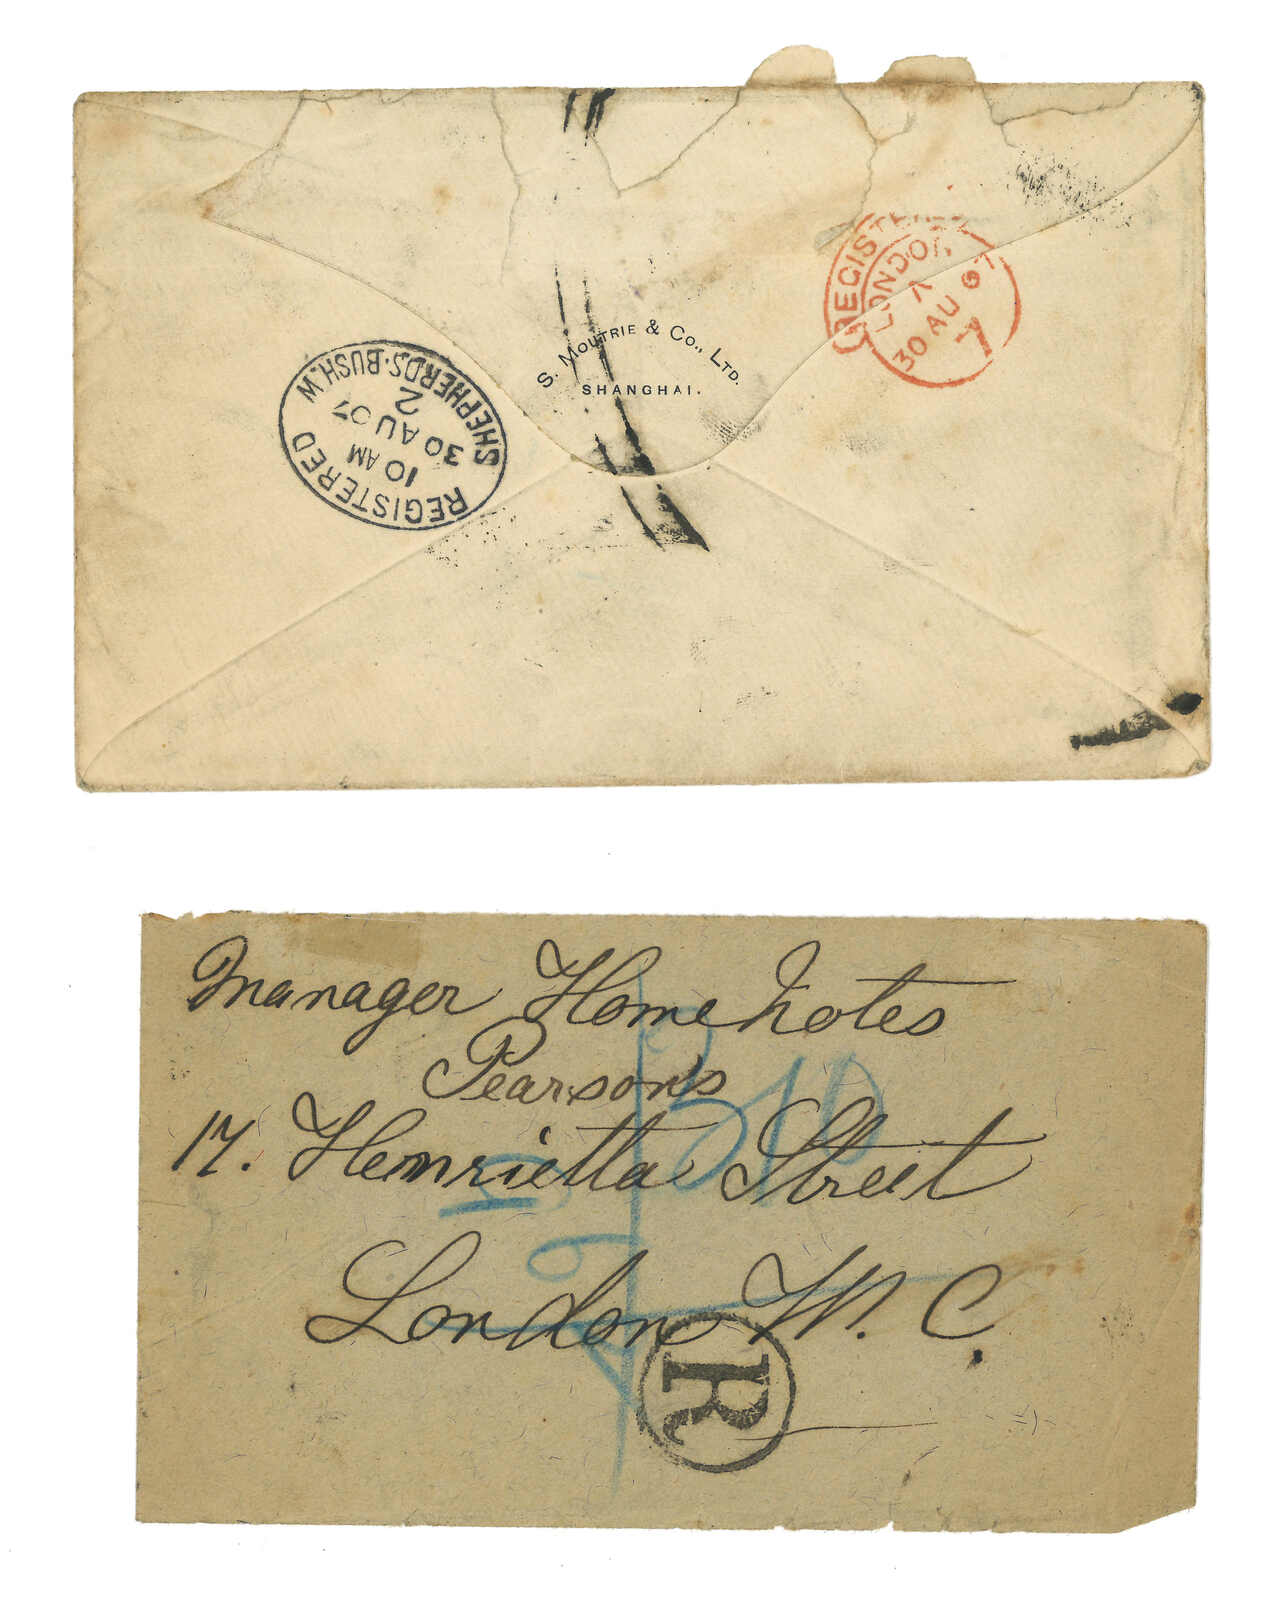 S. MOUTRIE & CO., LTD.
SHANGHAI.
REGISTERED
LONDON
30 AU 07
7
REGISTERED
10 AM
30 AU 07
2
SHEPHERDS·BUSH.W
Manager Home Notes
Pearsons
17. Henrietta Street
London W. C.
R